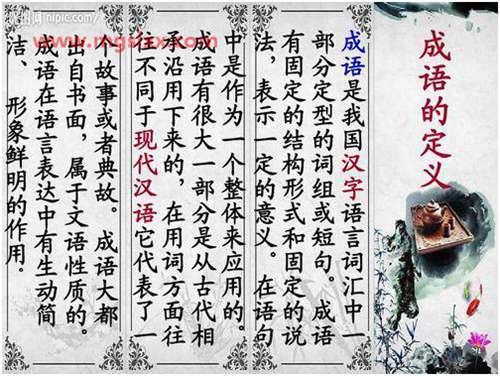 成语的定义
成语是我国汉字语言词汇中一
部分定型的词组或短句。成语
有固定的结构形式和固定的说
法，表示一定的意义。在语句
中是作为一个整体来应用的。
成语有很大一部分是从古代相
承沿用下来的，在用词方面往
往不同于现代汉语它代表了一
个故事或者典故。成语大都
出自书面，属于文语性质的。
成语在语言表达中有生动简
洁、形象鲜明的作用。
nipic.com